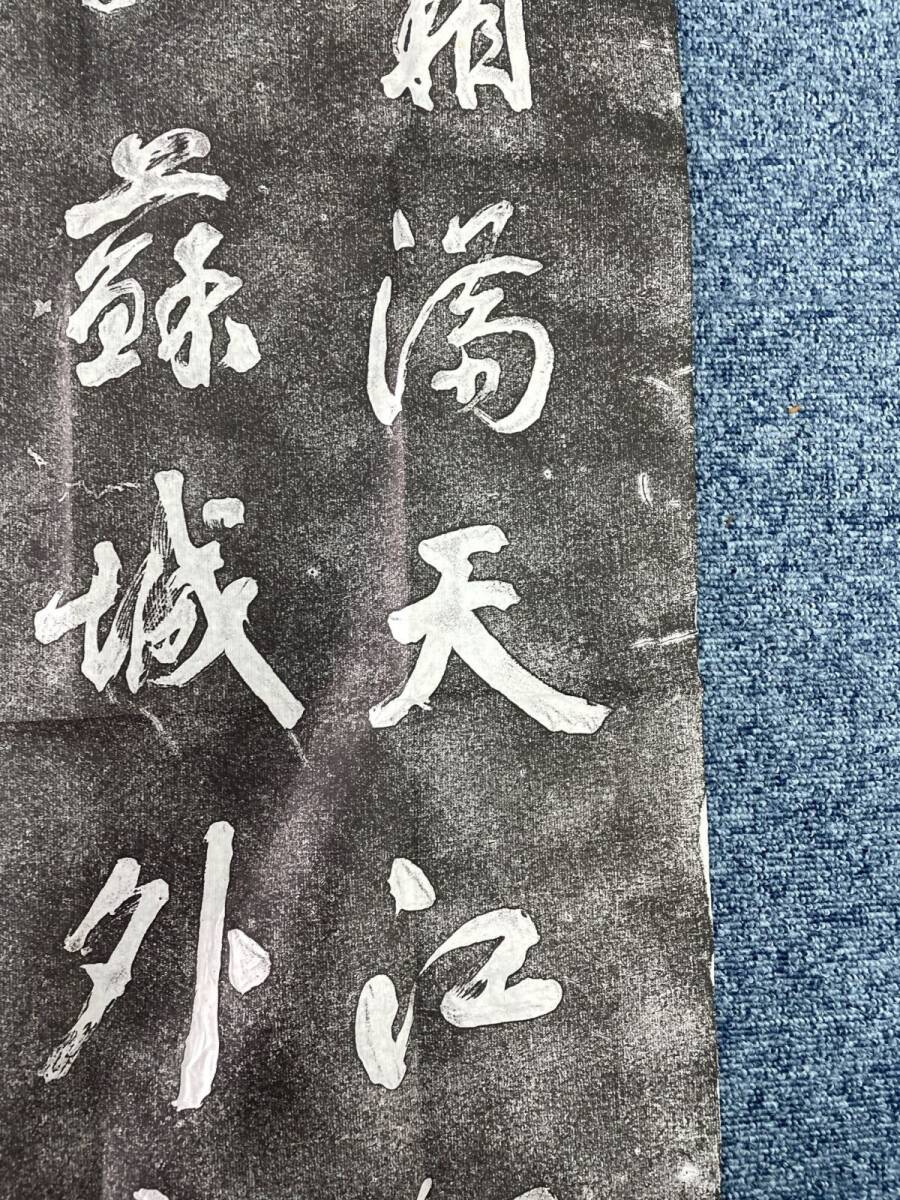 霜滿天江
蘇城外